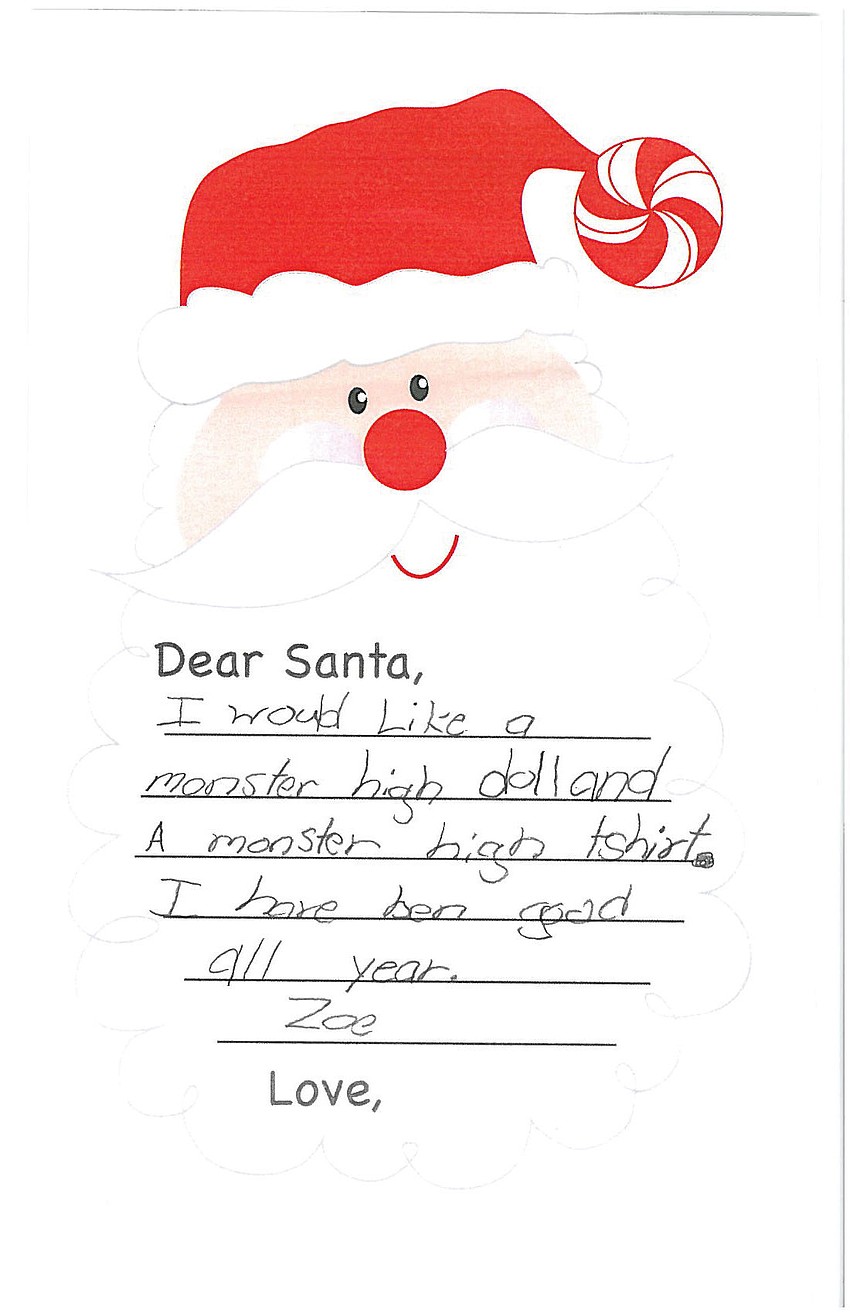 Dear Santa,
I would Like a
monster high doll and
A monster high tshirt.
I have ben good
all year.
Zoe
Love,